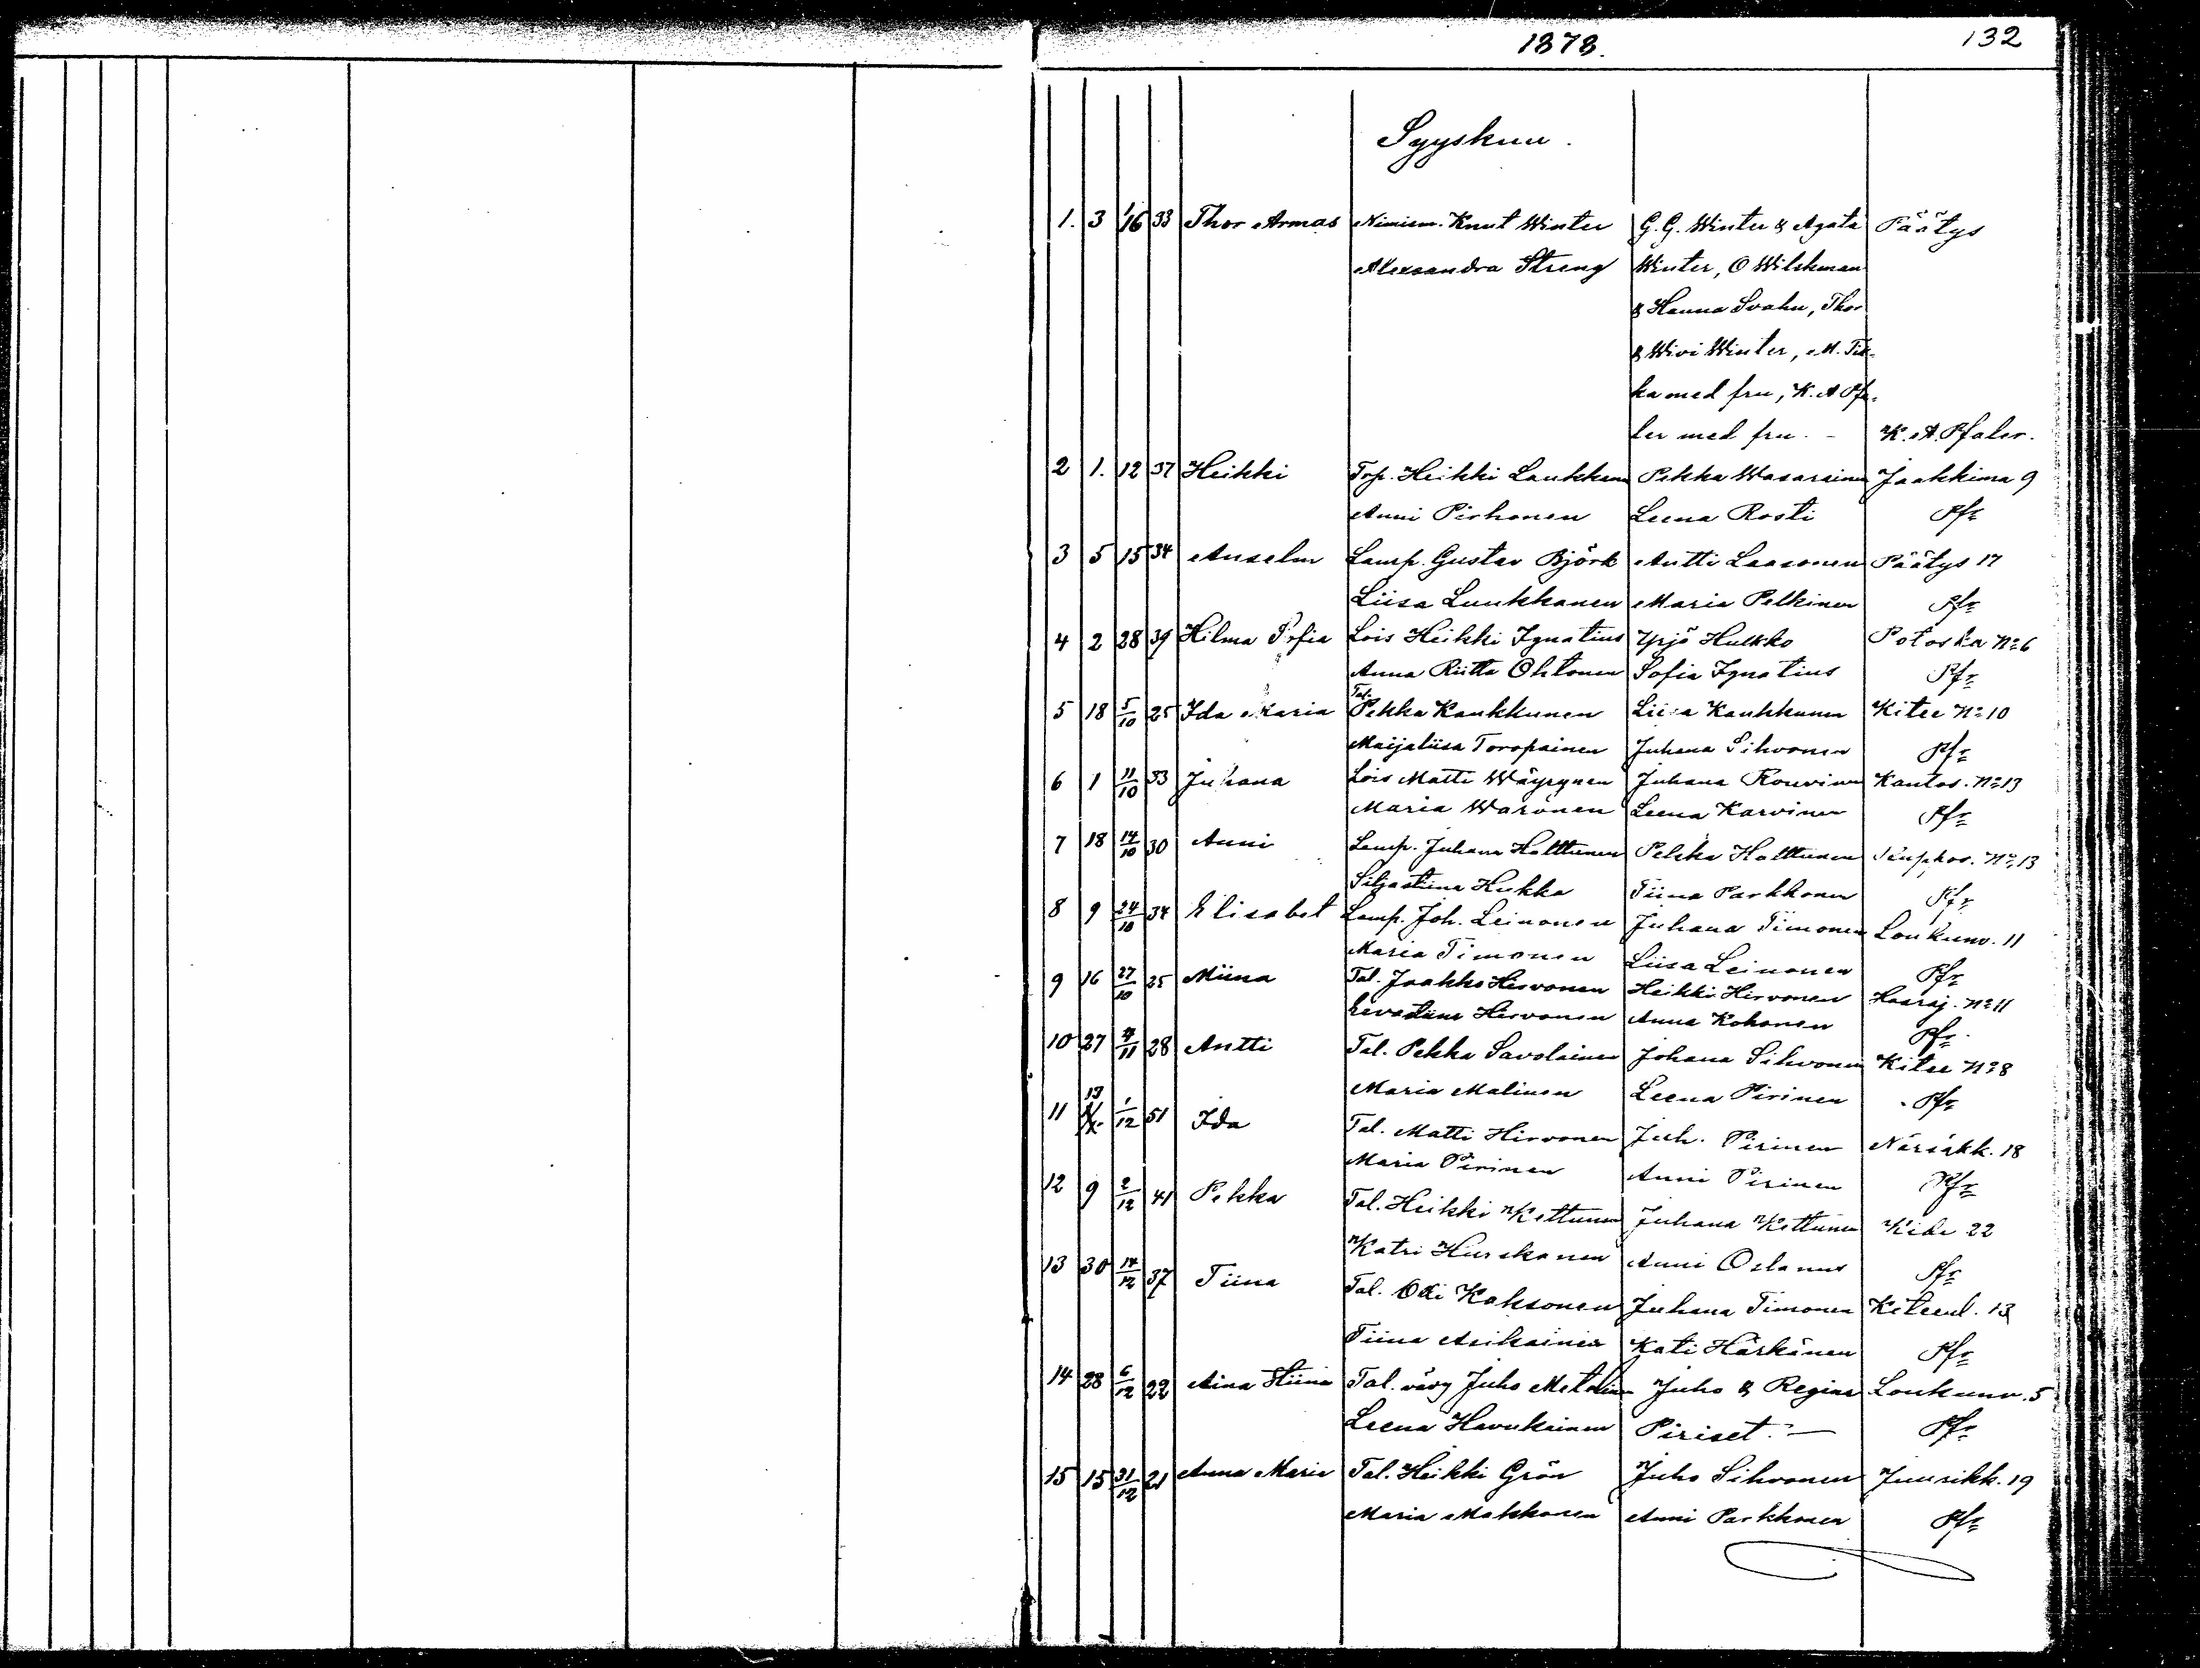 1878. 132
Syyskuu.
1. 3 1/16 33 Thor Armas Nimism. Knut Winter G. G. Winter & Agata Päätys
Alexsandra Streng Winter, O Wilskman
& Hanna Svahn, Thor
& Wivi Winter, M. Tik-
ka med fru, K. A Pfa-
ler med fru. - K. A. Pfaler.
2 1. 12 37 Heikki Torp. Heikki Laukkanen Pekka Wasarainen Jaakkima 9
Anni Pirhonen Leena Rosti Pfr
3 5 15 34 Anselm Lamp. Gustav Björk Antti Laasonen Päätys 17
Liisa Luukkanen Maria Pelkinen Pfr
4 2 28 39 Hilma Sofia Lois Heikki Ignatius Yrjö Hukko Potoska No 6
Anna Riitta Ohtonen Sofia Ignatius Pfr
5 18 5/10 25 Ida Maria Tal. Pekka Kaukkunen Liisa Kaukkunen Kitee No 10
Maijaliisa Toropainen Juhana Sihvonen Pfr
6 1 11/10 33 Juhana Lois Matti Wäyrynen Juhana Rouvinen Kantos. No 13
Maria Waronen Leena Karvinen Pfr
7 18 14/10 30 Anni Lamp. Juhana Holttunen Pekka Holttunen No 13
Siljastiina Hukka Tiina Parkkonen Pfr
8 9 24/10 34 Elisabet Lamp. Joh. Leinonen Juhana Timonen Loukunv. 11
Maria Timonen Liisa Leinonen Pfr
9 16 27/10 25 Miina Tal. Jaakko Hirvonen Heikki Hirvonen Haaraj. No 11
Eevastiina Hirvonen Anna Kohonen Pfr.
10 27 4/11 28 Antti Tal. Pekka Savolainen Johana Sihvonen Kitee No 8
Maria Malinen Leena Pirinen Pfr
11 13 1/12 51 Ida Tal. Matti Hirvonen Juh. Pirinen Närsäkk. 18
Maria Pirinen Anni Pirinen Pfr
12 9 2/12 41 Pekka Tal. Heikki Kettunen Juhana Kettunen Kide 22
Katri Hurskanen Anni Pfr
13 30 14/12 37 Tiina Tal. Olli Kaksonen Juhana Timonen Kiteenl. 13
Tiina Asikainen Kati Härkänen Pfr
14 28 6/12 22 Aina Stiina Tal. vävy Juho Juho & Regina Loukunv. 5
Leena Havukainen Piriset. — Pfr
15 15 31/12 21 Anna Maria Tal. Heikki Grön Juho Sihvonen Juurikk. 19
Maria Makkonen Anni Parkkonen Pfr